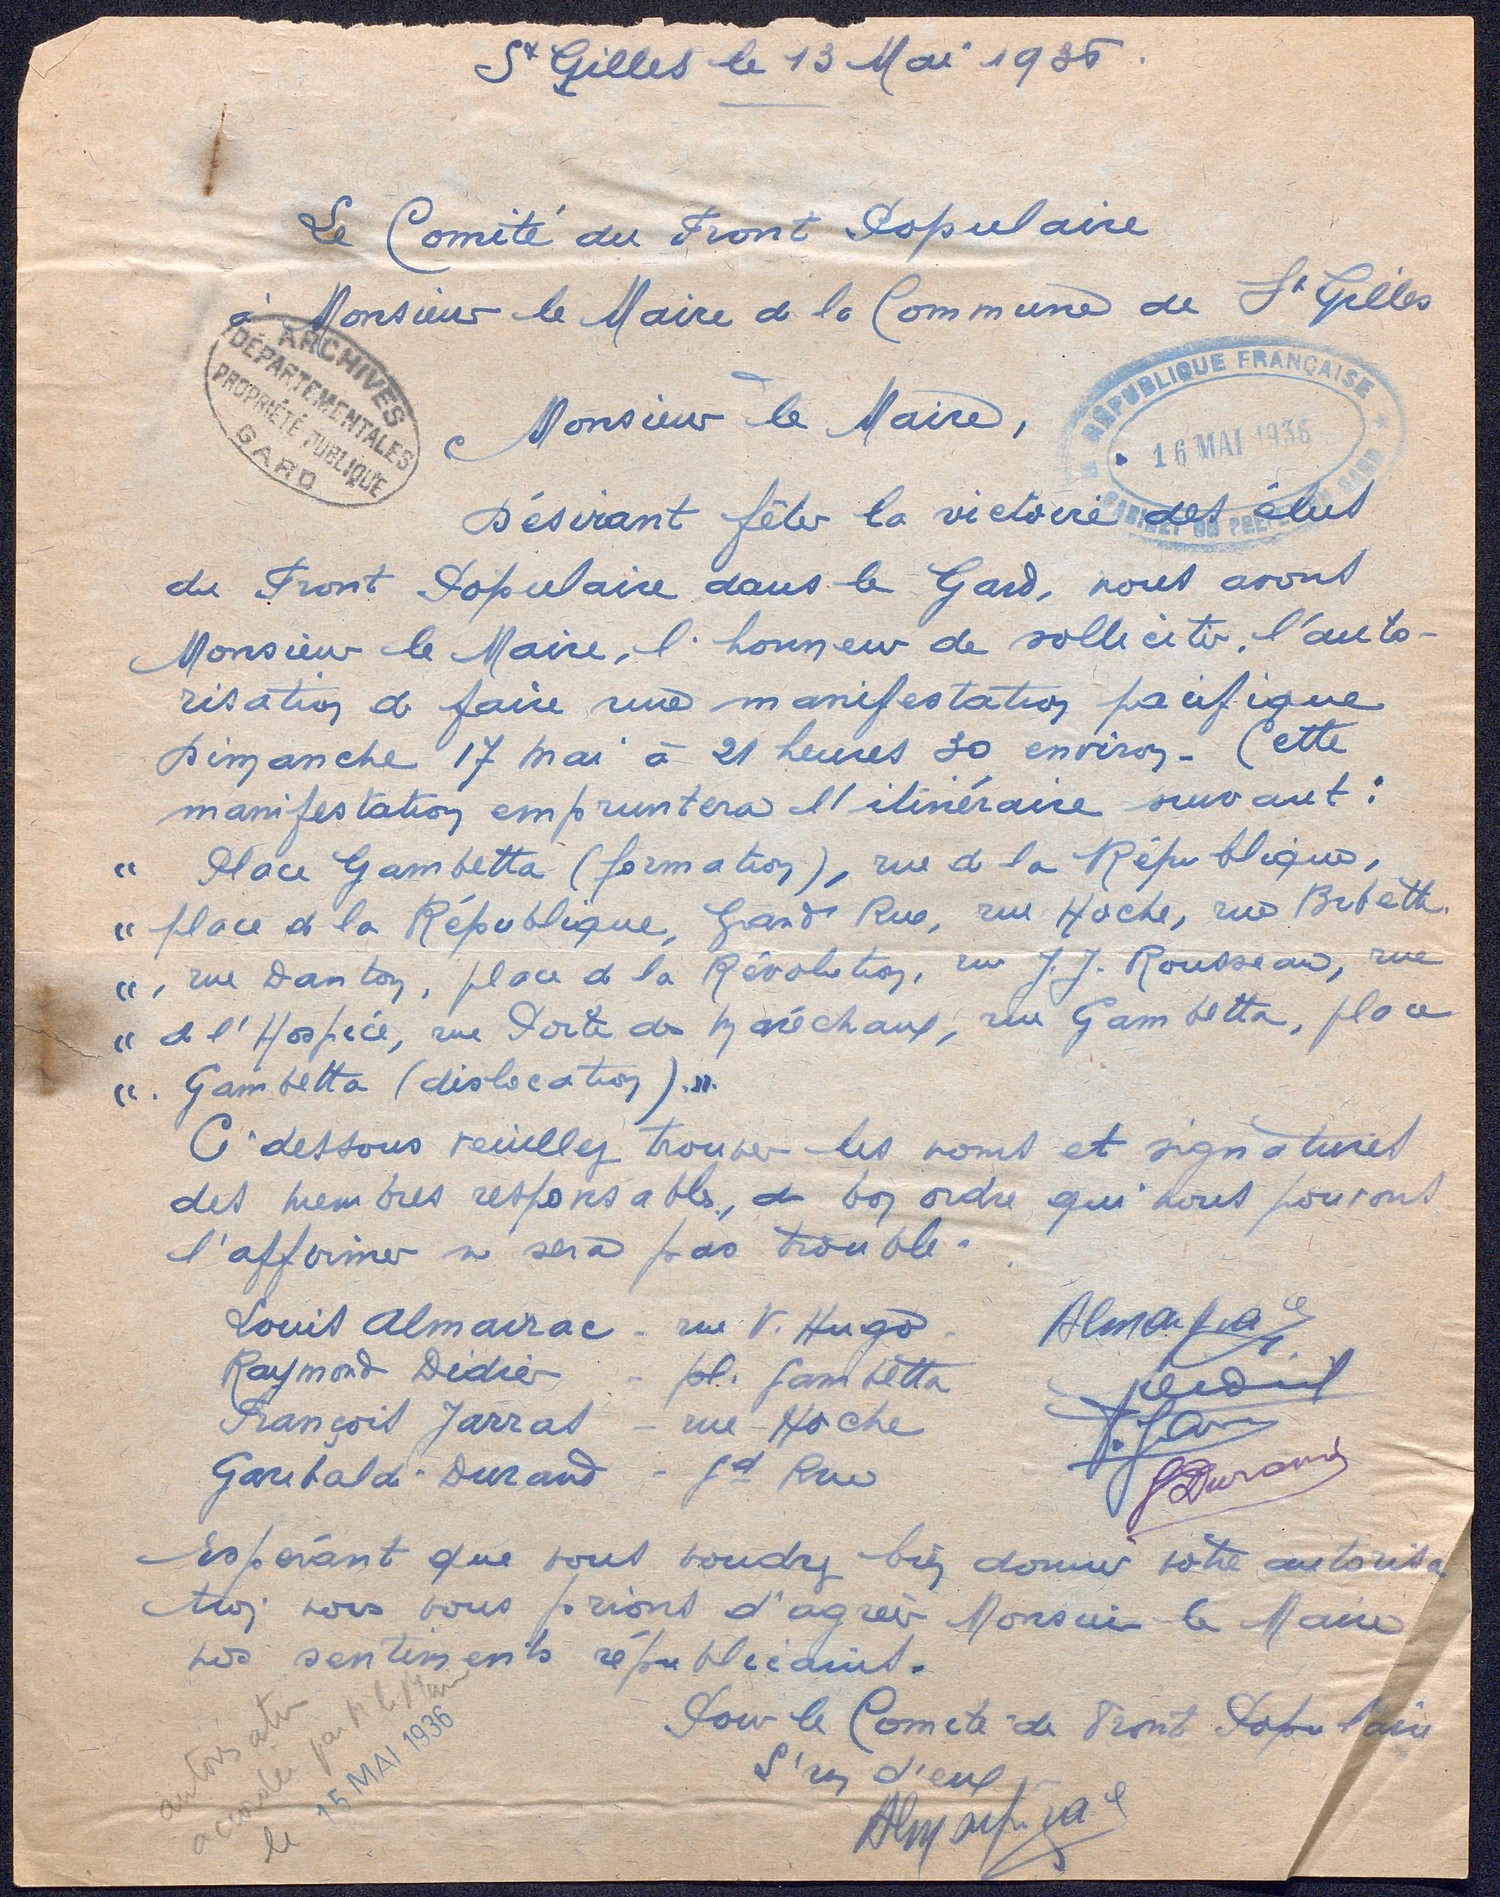 St Gilles le 13 Mai 1936.
Le Comité du Front Populaire
à Monsieur le Maire de la Commune de St Gilles
ARCHIVES
DÉPARTEMENTALES
PROPRIÉTÉ PUBLIQUE
GARD
RÉPUBLIQUE FRANÇAISE
16 MAI 1936
CABINET DU PRÉFET DU GARD
Monsieur le Maire,
Désirant fêter la victoire des élus
du Front Populaire dans le Gard, nous avons
Monsieur le Maire, l'honneur de solliciter, l'auto-
risation de faire une manifestation pacifique
Dimanche 17 mai à 21 heures 30 environ - Cette
manifestation empruntera l'itinéraire suivant :
" Place Gambetta (formation), rue de la République,
" place de la République, Grand Rue, rue Hoche, rue
", rue Danton, place de la Révolution, rue J. J. Rousseau, rue
" de l'Hospice, rue Porte des Maréchaux, rue Gambetta, place
". Gambetta (dislocation)."
Ci dessous veuillez trouver les noms et signatures
des membres responsables, du bon ordre qui nous pouvons
l'affirmer ne sera pas troublé.
Louis Almairac - rue V. Hugo - Almairac
Raymond Didier - pl. Gambetta
François Jarras - rue Hoche
Garibaldi Durand - Gd Rue G Durand
Espérant que vous voudrez bien donner votre autorisa
tion nous vous prions d'agréer Monsieur le Maire
nos sentiments républicains.
Pour le Comité de Front Populaire
L'un d'eux
Almairac
autorisation
accordée par M le Maire
le 15 MAI 1936